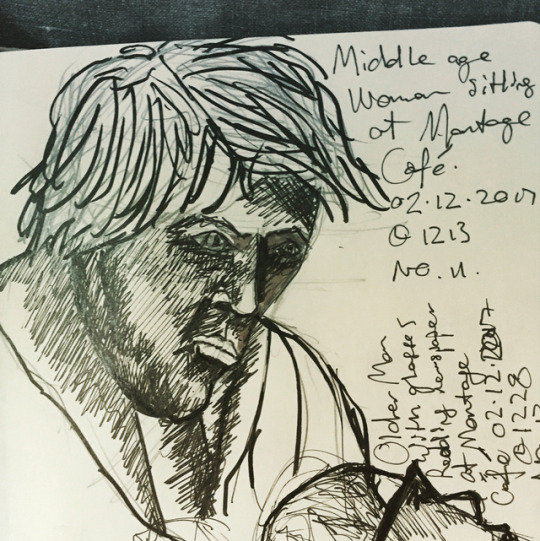 Middle age
Woman sitting
at Montage
Café.
02.12.2017
@ 1213
No. 11.
Older Man
with glasses
Reading newspaper
at Montage
Café 02.12.2017
@ 1228